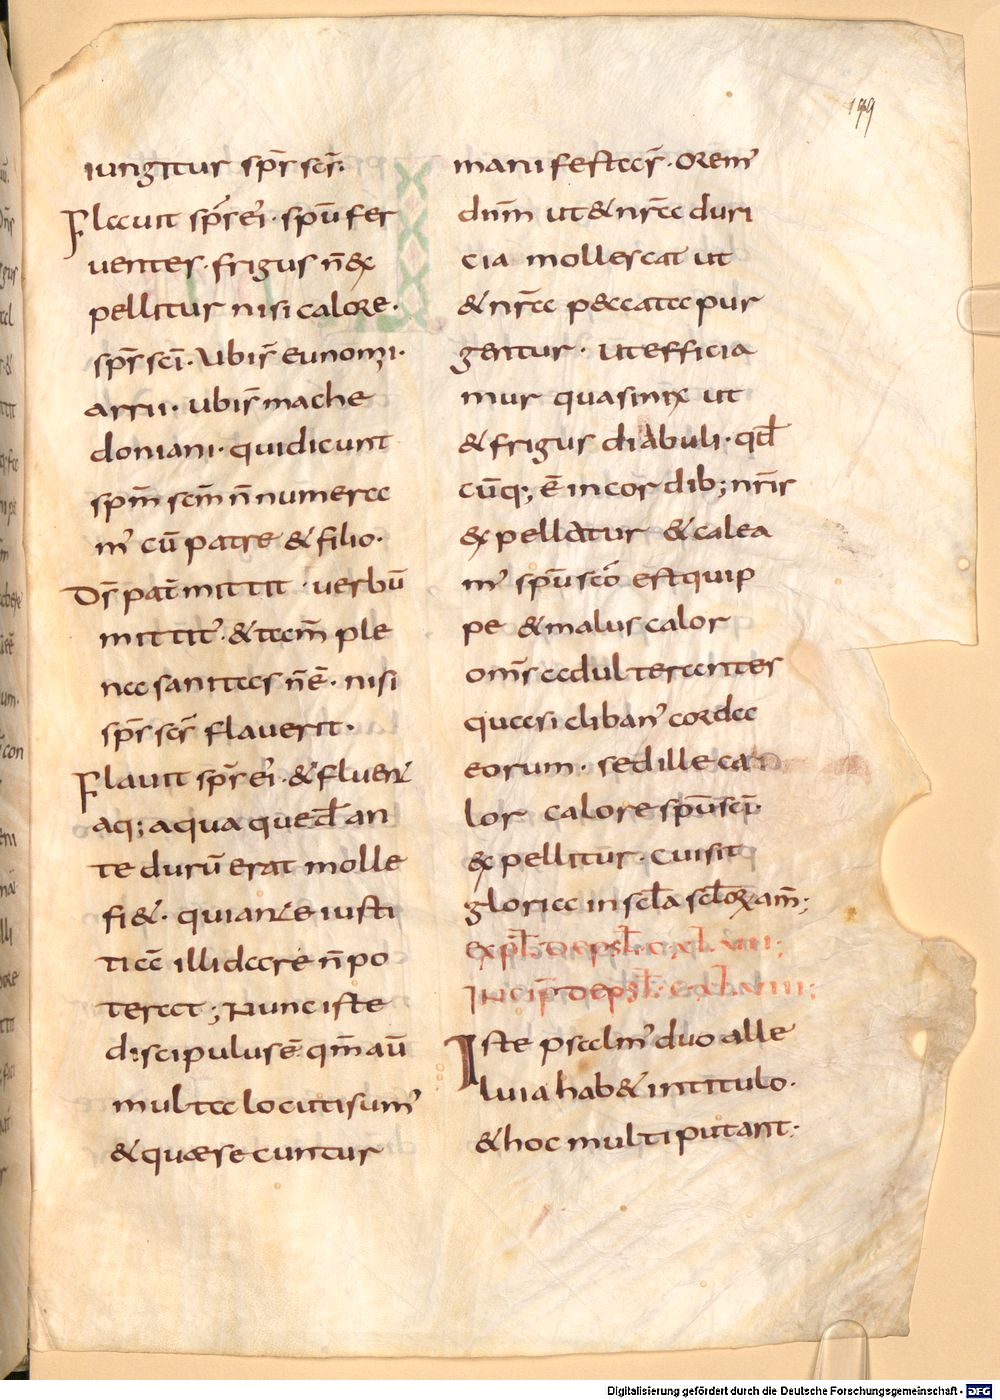 199
iungitur sp̄s sc̄s.
Flauit sp̄s ei᷒. spū fer
uentes. frigus n̄ ex
pellitur nisi calore.
sp̄s sc̄i. Ubi s̄ eunomi.
arrii. ubi s̄ mache
doniani. qui dicunt
sp̄m sc̄m n̄ numerea
m᷒ cū patre & filio.
D̄s pat̄ mittit. uerbū
mittit᷒. & tam̄ ple
na sanitas n̄ ē. nisi
sp̄s sc̄s flauerit.
Flauit sp̄s ei᷒. & fluent
aq; aqua que qd̄ an
te durū erat molle
fi&. quia ante iusti
tiā illi dare n̄ po
terat; Nunc iste
discipulus ē qm̄ aū
multa locuti sum᷒
& quæsecuntur
manifesta s̄. orem᷒
dn̄m ut & nr̄a duri
cia mollescat ut
& nr̄a peccata pur
gentur. ut efficia
mur quasi nix ut
& frigus diabuli. qd̄
cūq; ē in cordib; nr̄is
expellatur & calea
m᷒ spū sc̄o est quip
pe & malus calor
om̄s adulterantes
quasi cliban᷒ corda
eorum. sed ille ca
lor calore sp̄u sc̄i.
expellitur. cui sit
gloria in sc̄la sc̄lorꝝ am̄;
expl̄. de psl̄. cxlvii;
Incip̄ de psl̄. cxlviii;
Iste psalm᷒ duo alle
luia hab& in titulo.
& hoc multi putant.
Digitalisierung gefördert durch die Deutsche Forschungsgemeinschaft - DFG